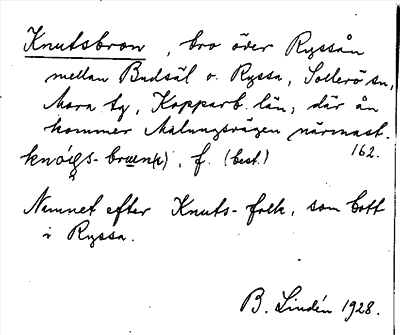 Knutsbron, bro över Ryssån
mellan Budsäl o. Ryssa, Sollerö sn,
Mora tg, Kopparb. län; där ån
kommer Malungsvägen närmast.
f. (best.) 162.
Namnet efter Knuts-folk, som bott
i Ryssa.
B. Lindén 1928.